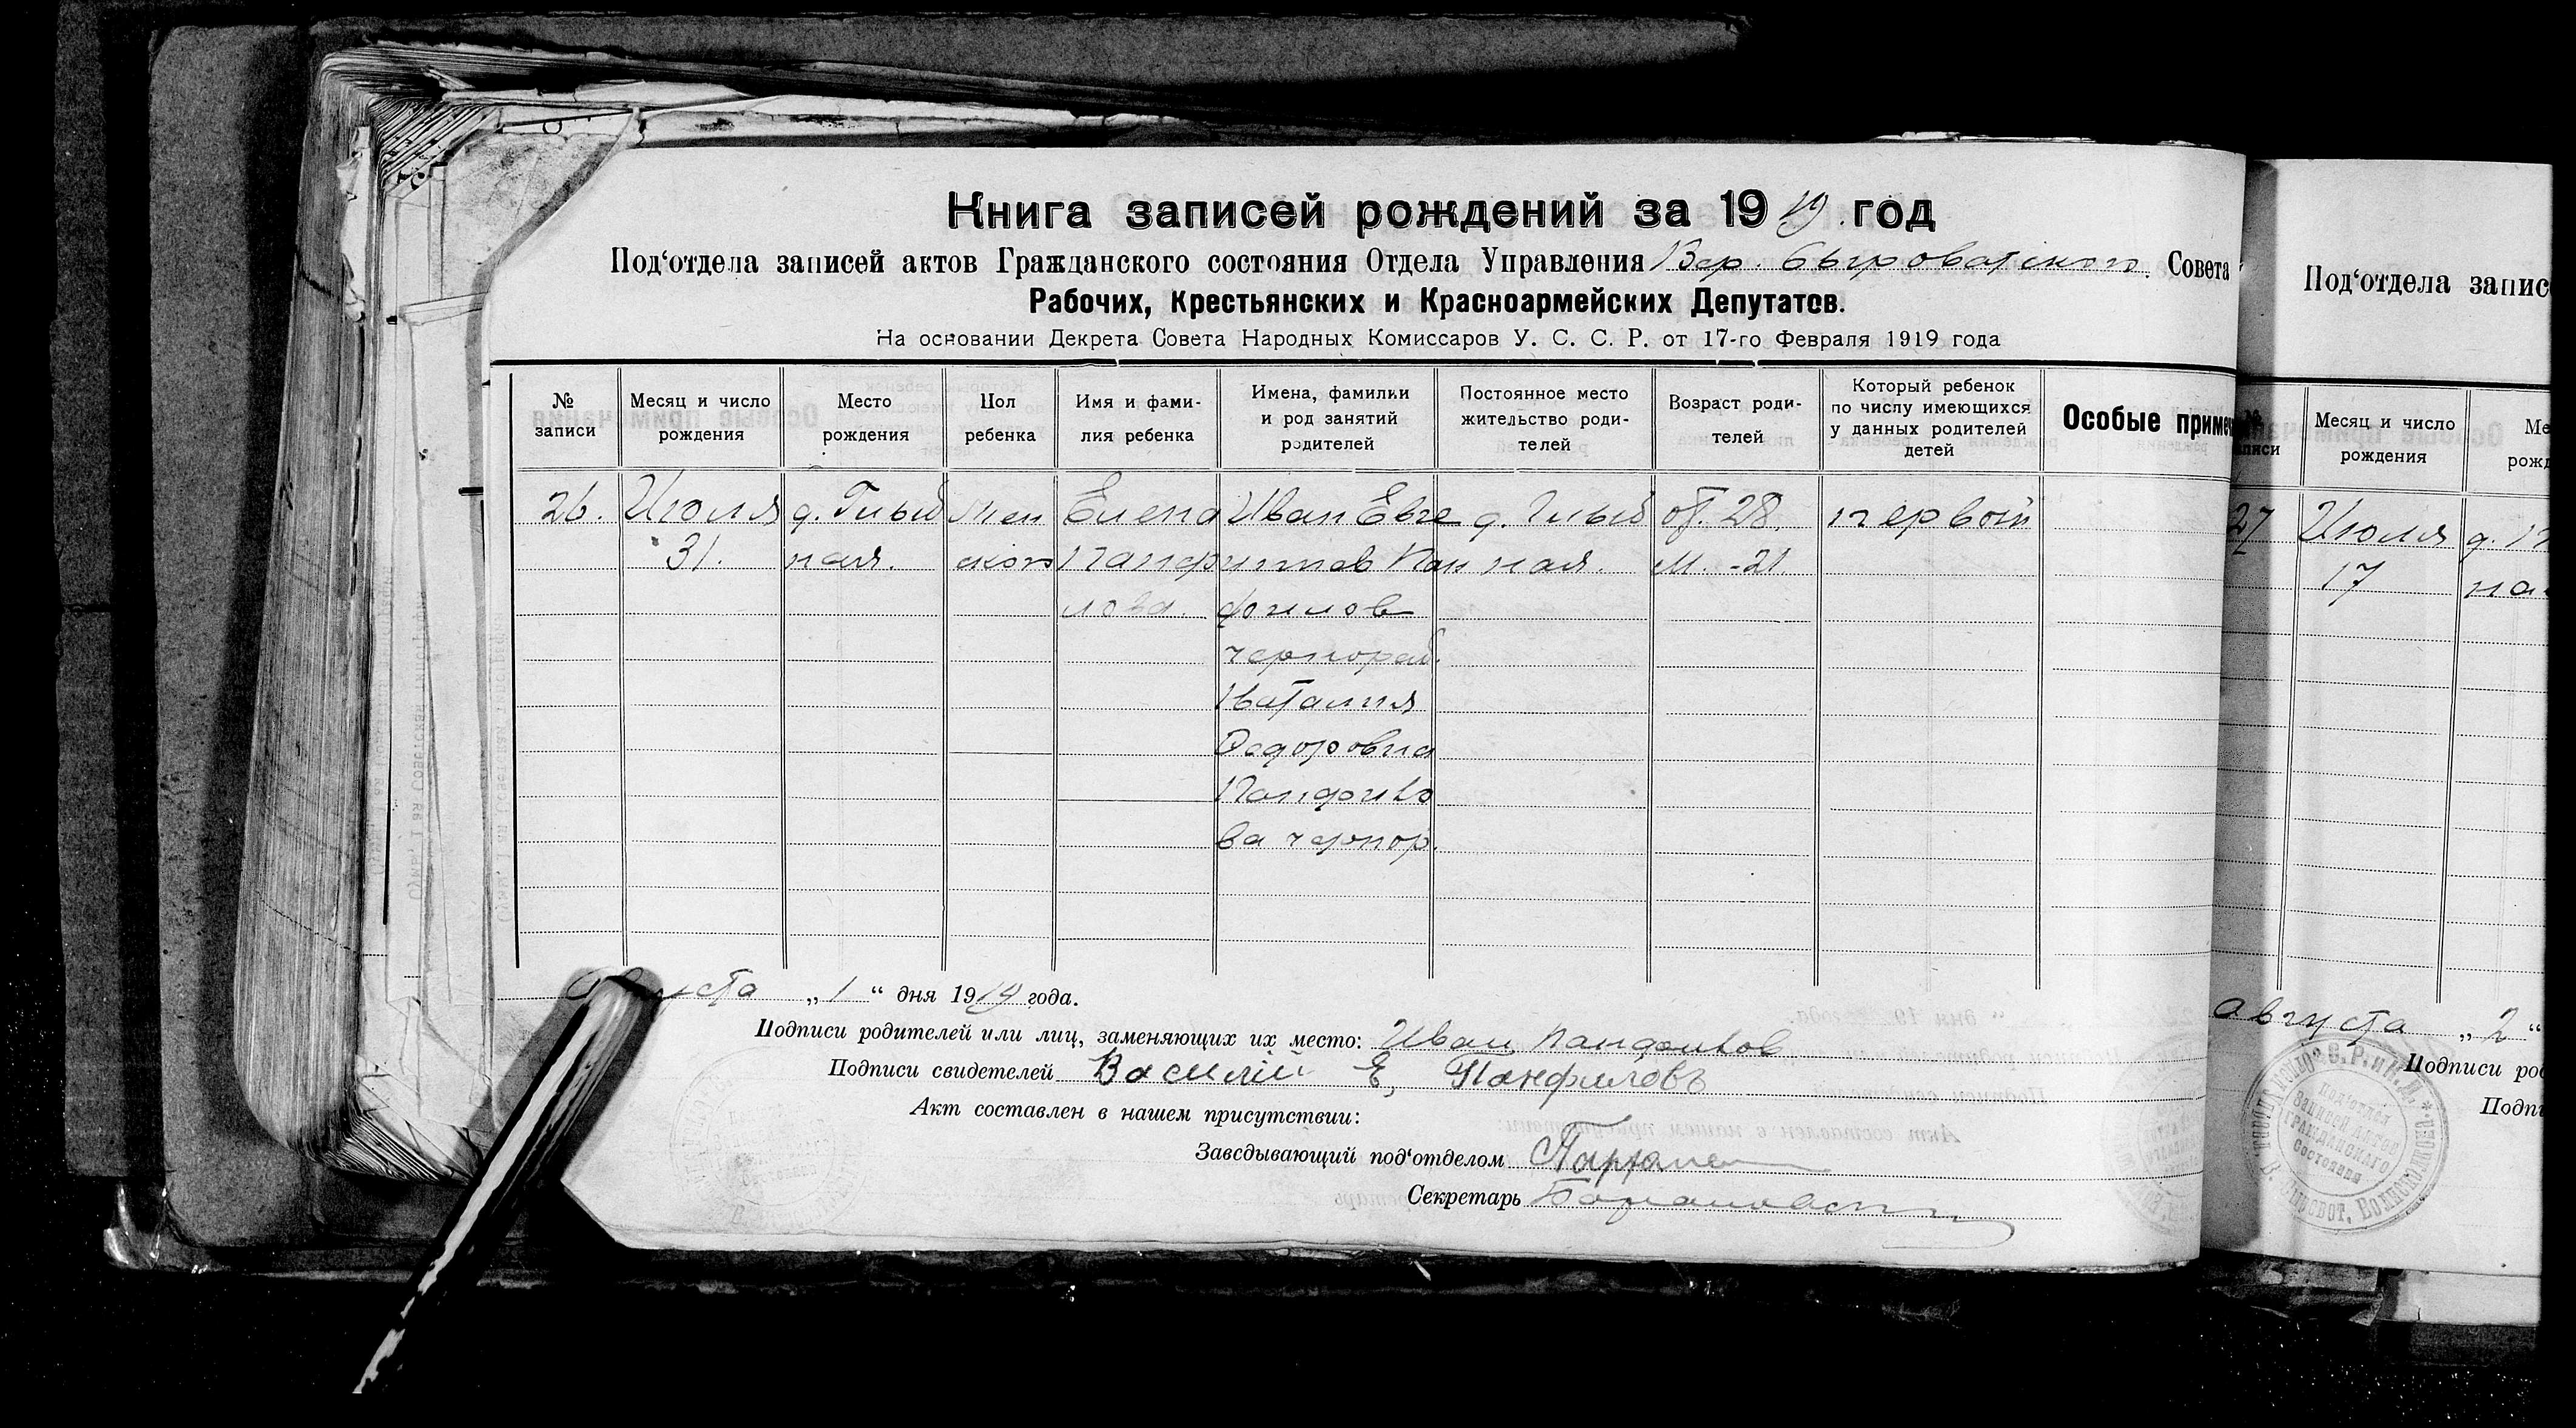 Книга записей рождений за 1919. год
Под‘отдела записей актов Гражданского состояния Отдела Управления Вер. Сыроватского Совета
Рабочих, Крестьянских и Красноармейских Депутатов.
На основании Декрета Совета Народных Комиссаров У. С. С. Р. от 17-го Февраля 1919 года
№ записи
Месяц и число рождения
Место рождения
Пол ребенка
Имя и фами-
лия ребенка
Имена, фамилии
и род занятий
родителей
Постоянное место
жительство роди-
телей
Возраст роди-
телей
Который ребенок
по числу имеющихся
у данных родителей
детей
Особые приме
26. Июля д. Глыб Жен Елена Иван Евге д. Глыб от. 28. первой
31. ная. ского Панфи Пан ная. М. -21.
лова. филов
чернораб.
Наталия
Федоровна
Панфило
ва чернор.
уста „1“ дня 1919 года.
Подписи родителей или лиц, заменяющих их место: Иван Панфилов
Подписи свидетелей Василий Е, Панфиловъ
Акт составлен в нашем присутствии:
Заведывающий под‘отделом
Секретарь
Под‘отдела запис
Месяц и число
рождения
Ме
рожд
27 Июля д.
17 на
августа „2“
Подписи ро
Подп
Под‘отдел
Записей Актов
Гражданскаго
Состояния